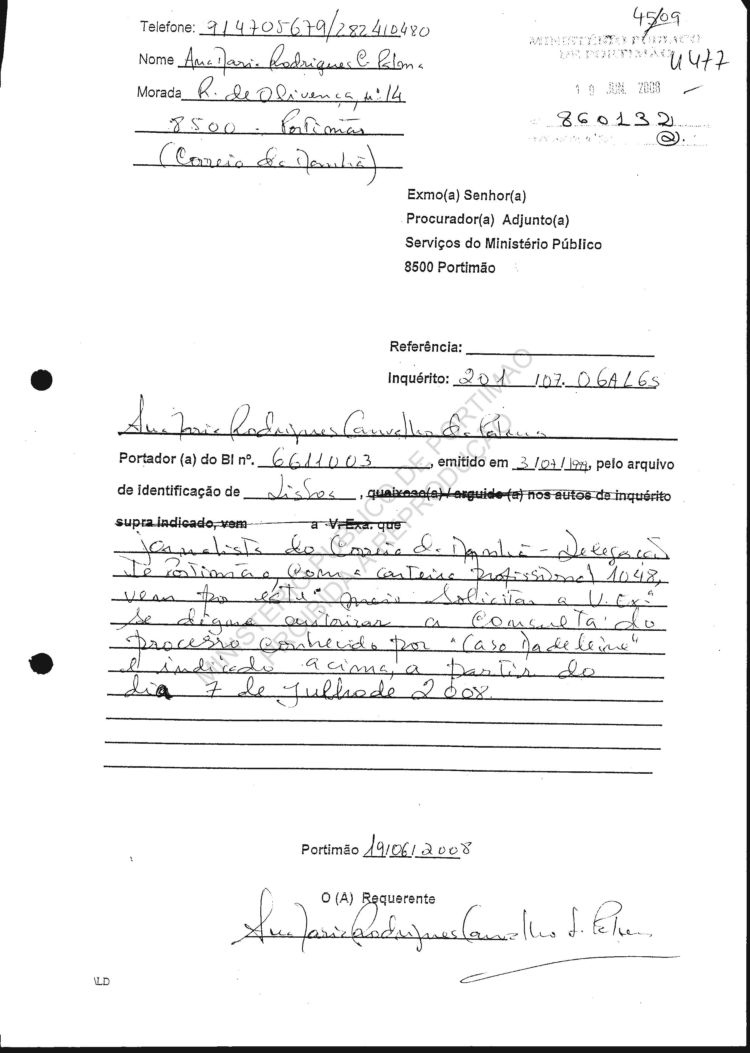 Telefone: 914705679/282410480
45/09
MINISTÉRIO PÚBLICO
DE PORTIMÃO
4477
Nome Ana Maria Rodrigues C. Palma
19 JUN. 2008
Morada R. de Olivença, nº 14
860132
8500 - Portimão
(Correio da Manhã)
Exmo(a) Senhor(a)
Procurador(a) Adjunto(a)
Serviços do Ministério Público
8500 Portimão
Referência:
Inquérito: 201 /07.0GALGS
Ana Maria Rodrigues Carvalho S. Palma
Portador (a) do BI nº. 6611003, emitido em 3/07/1999, pelo arquivo
de identificação de Lisboa, queixoso(a)/ arguido (a) nos autos de inquérito
supra indicado, vem a V. Exa. que
jornalista do Correio da Manhã - Delegação
de Portimão, com a carteira profissional 1048,
vem por este meio solicitar a V. Exª
se digne autorizar a consulta do
processo conhecido por "Caso Madeleine"
e indicado acima, a partir do
dia 7 de Julho de 2008
MINISTÉRIO PÚBLICO DE PORTIMÃO
PROIBIDA A REPRODUÇÃO
Portimão 19/06/2008
O (A) Requerente
Ana Maria Rodrigues Carvalho S. Palma
\LD